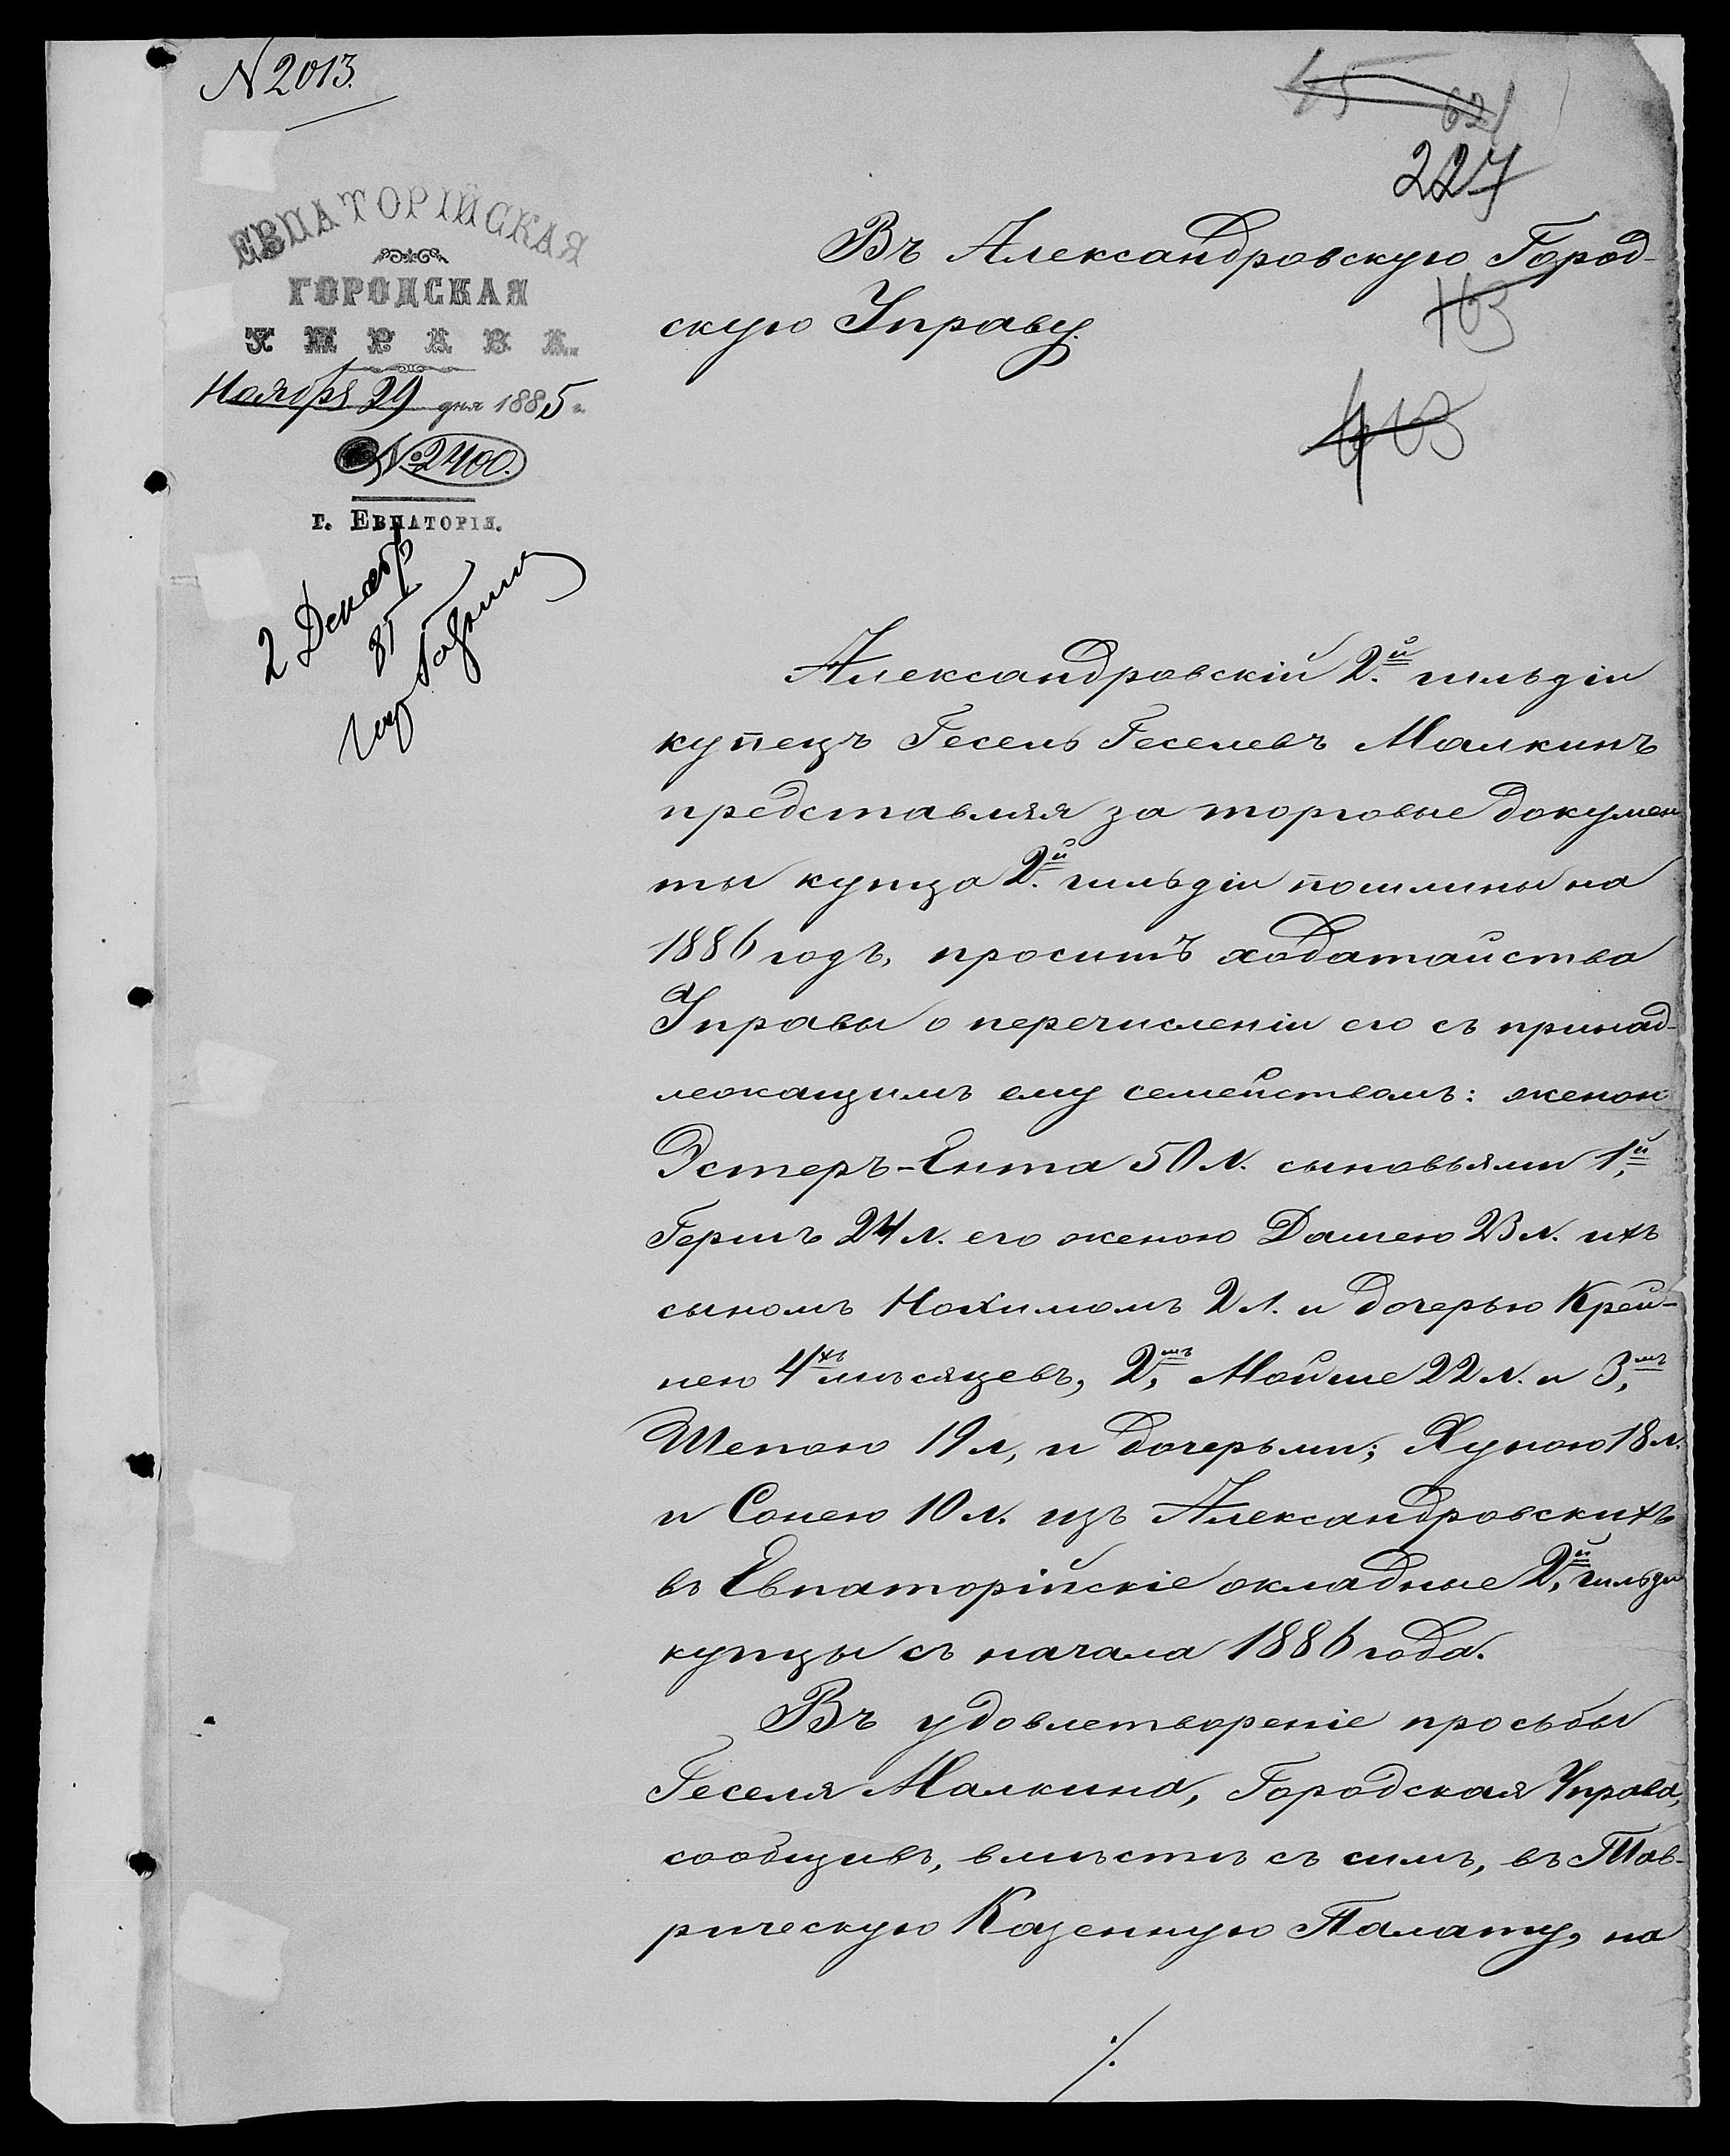 N 2013.
227
ЕВПАТОРІЙСКАЯ
ГОРОДСКАЯ
УПРАВА.
Ноября 29 дня 1885 г.
№ 2400.
г. ЕВПАТОРІЯ.
2 Декабр
85
Въ Александровскую Город-
скую Управу.
Александровскій 2.й гильдіи
купецъ Гесель Геселевъ Малкинъ
представляя за торговые докумен
ты купца 2.й гильдіи пошлины на
1886 годъ, проситъ ходатайства
Управы о перечисленіи его съ принад-
лежащимъ ему семействомъ: женою
Эстеръ-Ента 50 л. сыновьями 1,й
Гершъ 24 л. его женою Дашею 23 л. ихъ
сыномъ Нохимомъ 2 л. и дочерью Крей-
нею 4хъ мѣсяцевъ, 2,мъ Мойше 22 л. и 3,мъ
Шепою 19 л, и дочерьми; Хуною 18 л.
и Сонею 10 л. изъ Александровскихъ
въ Евпаторійскіе окладные 2,й гильдіи
купцы съ начала 1886 года.
Въ удовлетвореніе просьбы
Геселя Малкина, Городская Управа,
сообщивъ, вмѣстѣ съ симъ, въ Тав-
рическую Казенную Палату, на
./.